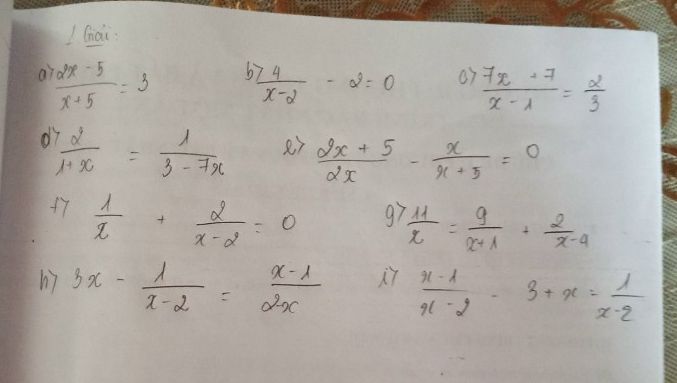 1 Giải:
a) (2x - 5)/(x + 5) = 3 b) 4/(x - 2) - 2 = 0 c) (7x + 7)/(x - 1) = 2/3
d) 2/(1 + x) = 1/(3 - 7x) e) (2x + 5)/(2x) - x/(x + 5) = 0
f) 1/x + 2/(x - 2) = 0 g) 11/x = 9/(x + 1) + 2/(x - 4)
h) 3x - 1/(x - 2) = (x - 1)/(2 - x) i) (x - 1)/(x - 2) - 3 + x = 1/(x - 2)